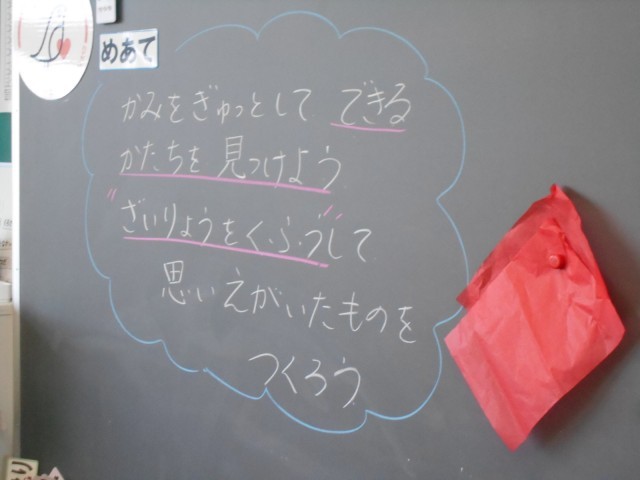 めあて
かみをぎゅっとして できる
かたちを 見つけよう
"ざいりょうをくふう"して
思いえがいたものを
つくろう